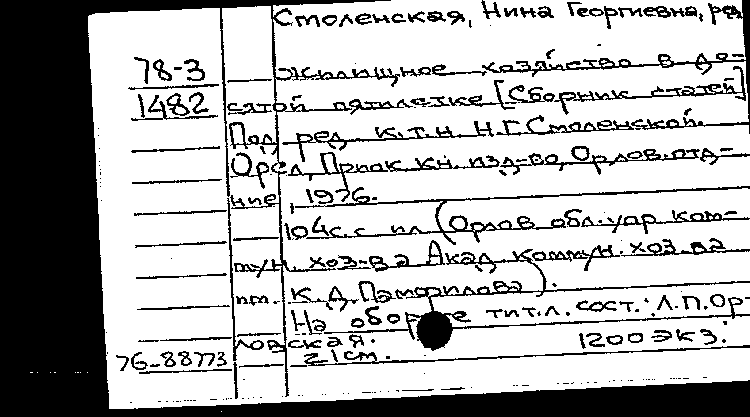 Смоленская, Нина Георгиевна, ред
78-3
1482
Жилищное хозяйство в де-
сятой пятилетке [Сборник статей]
Под ред. к.т.н. Н.Г.Смоленской.
Орел, Приок. кн. изд-во, Орлов. отд-
ние, 1976.
104с. с ил (Орлов обл. упр ком-
мун. хоз-ва Акад. коммун. хоз-ва
им. К.Д.Памфилова).
На обороте тит.л. сост.: Л.П.Ор-
ловская.
21см. 1200 экз.
76-88773